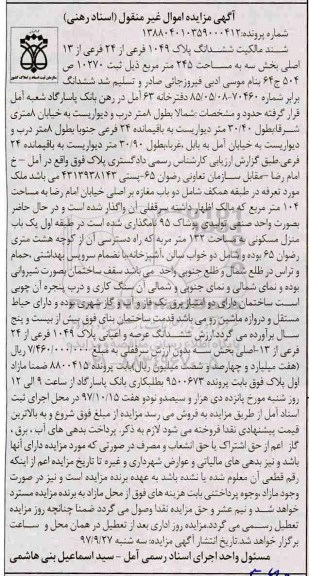 آگهی مزایده اموال غیر منقول (اسناد رهنی)
شماره پرونده:۱۳۸۸۰۴۰۱۰۳۵۹۰۰۰۴۱۲
سند مالکیت ششدانگ پلاک ۱۰۴۹ فرعی از ۲۴ فرعی از ۱۳
اصلی بخش سه به مساحت ۲۴۵ متر مربع ذیل ثبت ۱۰۲۷۰ ص
۵۰۴ ج ۶۴ بنام موسی ادبی فیروزجائی صادر و تسلیم شد ششدانگ
برابر شماره ۷۰۴۶۰-۸۵/۰۵/۰۸ دفترخانه ۶۳ آمل در رهن بانک پاسارگاد شعبه آمل
قرار گرفته حدود و مشخصات :شمالا بطول ۸متر درب و دیواریست به خیابان ۸متری
شرقا بطول ۳۰/۴۰ متر دیواریست به باقیمانده ۲۴ فرعی جنوبا بطول ۸متر درب و
دیواریست به خیابان آمل به بابل ،غربا بطول ۳۰/۹۰ متر دیواریست به باقیمانده ۲۴
فرعی طبق گزارش ارزیابی کارشناس رسمی دادگستری پلاک فوق واقع در آمل - خ
امام رضا –مقابل سازمان تعاونی رضوان ۶۵-پستی ۴۳۱۳۹۳۸۱۴۳ می باشد ملک
مورد تعرفه در طبقه همکف شامل دو باب مغازه بر اصلی خیابان امام رضا به مساحت
۱۰۴ متر مربع که مالک اظهار داشته سرقفلی آن واگذار شده است و در حال حاضر
بصورت واحد صنفی تولیدی پوشاک ۹۵ نامگذاری شده است در طبقه اول یک باب
منزل مسکونی به مساحت ۱۳۲ متر مربع که راه دسترسی آن از کوچه هشت متری
رضوان ۶۵ بوده و شامل دو خواب سالن ،آشپزخانه با انضمام سرویس بهداشتی ،حمام
و تراس در ظلع شمال و ظلع جنوبی واحد می باشد سقف ساختمان بصورت شیروانی
بوده و نمای شمالی و نمای جنوبی و شمالی آن سنگ کاری و درب پنجره آن چوبی
است ساختمان دارای دو امتیاز برق تک فاز و آب و گاز شهری بوده و دارای حیاط
مستقل و دروازه ماشین رو می باشد قدمت ساختمان بنای فوق بیش از بیست و پنج
سال برآورده می گردد ارزش ششدانگ عرصه و اعیانی پلاک ۱۰۴۹ فرعی از ۲۴
فرعی از ۱۳-اصلی بخش سه بدون ارزش سرقفلی به مبلغ ۷/۴۶۰/۰۰۰/۰۰۰ ریال
(هفت میلیارد و چهارصد و شصت میلیون ریال) بابت پرونده ۸۸۰۰۴۱۵ ضمنا مازاد
اول پلاک فوق بابت پرونده ۹۵۰۰۶۷۳ بطلبکاری بانک پاسارگاد از ساعت ۹ الی ۱۲
روز شنبه مورخ پانزده دی هزار و سیصدو نودو هفت ۹۷/۱۰/۱۵ در محل اجرای ثبت
اسناد آمل از طریق مزایده به فروش می رسد مزایده از مبلغ فوق شروع و به بالاترین
قیمت پیشنهادی نقدا فروخته می شود لازم به ذکر. پرداخت بدهی های آب ، برق ،
گاز اعم از حق اشتراک یا حق انشعاب و مصرف در صورتی که مورد مزایده دارای آنها
باشد و نیز بدهی های مالیاتی و عوارض شهرداری و غیره تا تاریخ مزایده اعم از اینکه
رقم قطعی آن معلوم شده یا نشده باشد به عهده برنده مزایده است و نیز در صورت
وجود مازاد ،وجوه پرداختی بابت هزینه های فوق از محل مازاد به برنده مزایده مسترد
خواهد شد و نیم عشر و حق مزایده نقدا وصول می گردد ضمنا چنانچه روز مزایده
تعطیل رسمی می گردد مزایده روز اداری بعد از تعطیل در همان محل و ساعت
برگزار خواهد شد تاریخ انتشار آگهی مزایده: سه شنبه ۹۷/۹/۲۷
مسئول واحد اجرای اسناد رسمی آمل - سید اسماعیل بنی هاشمی